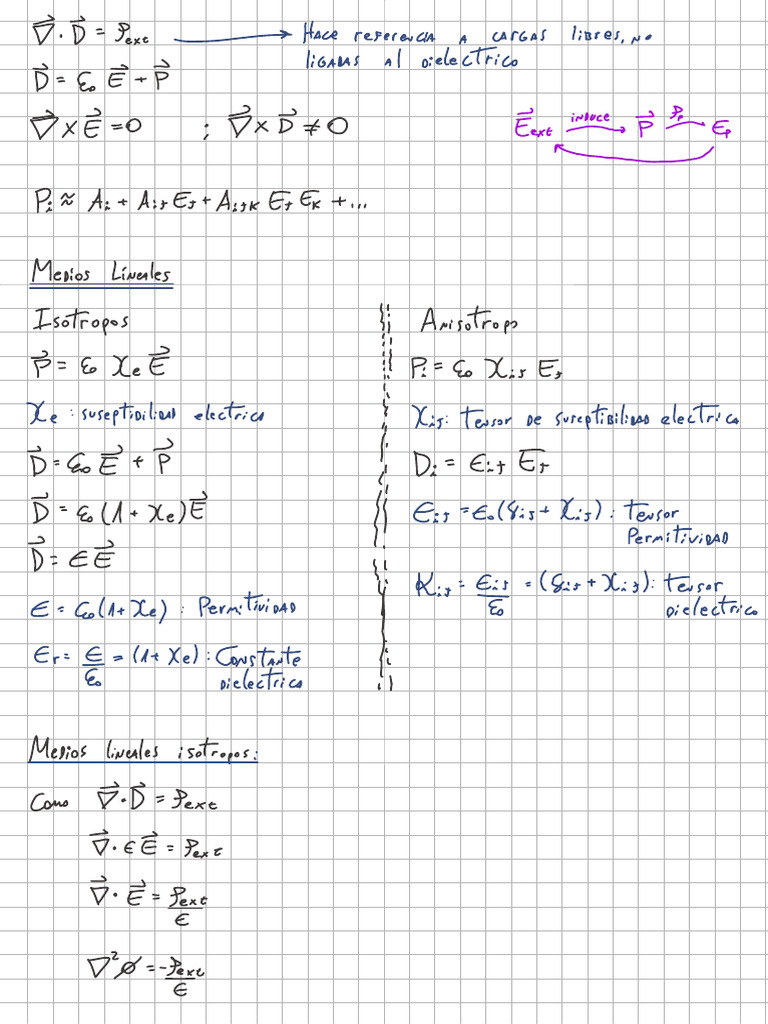 ∇⃗·D⃗ = ρext ⟶ Hace referencia a cargas libres, no
ligadas al dielectrico
D⃗ = ε₀ E⃗ + P⃗
∇⃗ × E⃗ = 0 ; ∇⃗ × D⃗ ≠ 0
E⃗ext —induce→ P⃗ —ρp→ Ep
Pi ≈ Ai + Aij Ej + Aijk Ej Ek + ...
Medios Lineales
Isotropos
P⃗ = ε₀ χe E⃗
χe : suseptibilidad electrica
D⃗ = ε₀ E⃗ + P⃗
D⃗ = ε₀ (1 + χe) E⃗
D⃗ = ε E⃗
ε = ε₀ (1 + χe) : Permitividad
εr = ε/ε₀ = (1 + χe) : Constante
dielectrica
Anisotropo
Pi = ε₀ χij Ej
χij: Tensor de suseptibilidad electrica
Di = εij Ej
εij = ε₀ (δij + χij) : tensor
Permitividad
Kij = εij/ε₀ = (δij + χij) : tensor
dielectrico
Medios lineales isotropos:
Como ∇⃗·D⃗ = ρext
∇⃗·ε E⃗ = ρext
∇⃗·E⃗ = ρext/ε
∇²φ = -ρext/ε